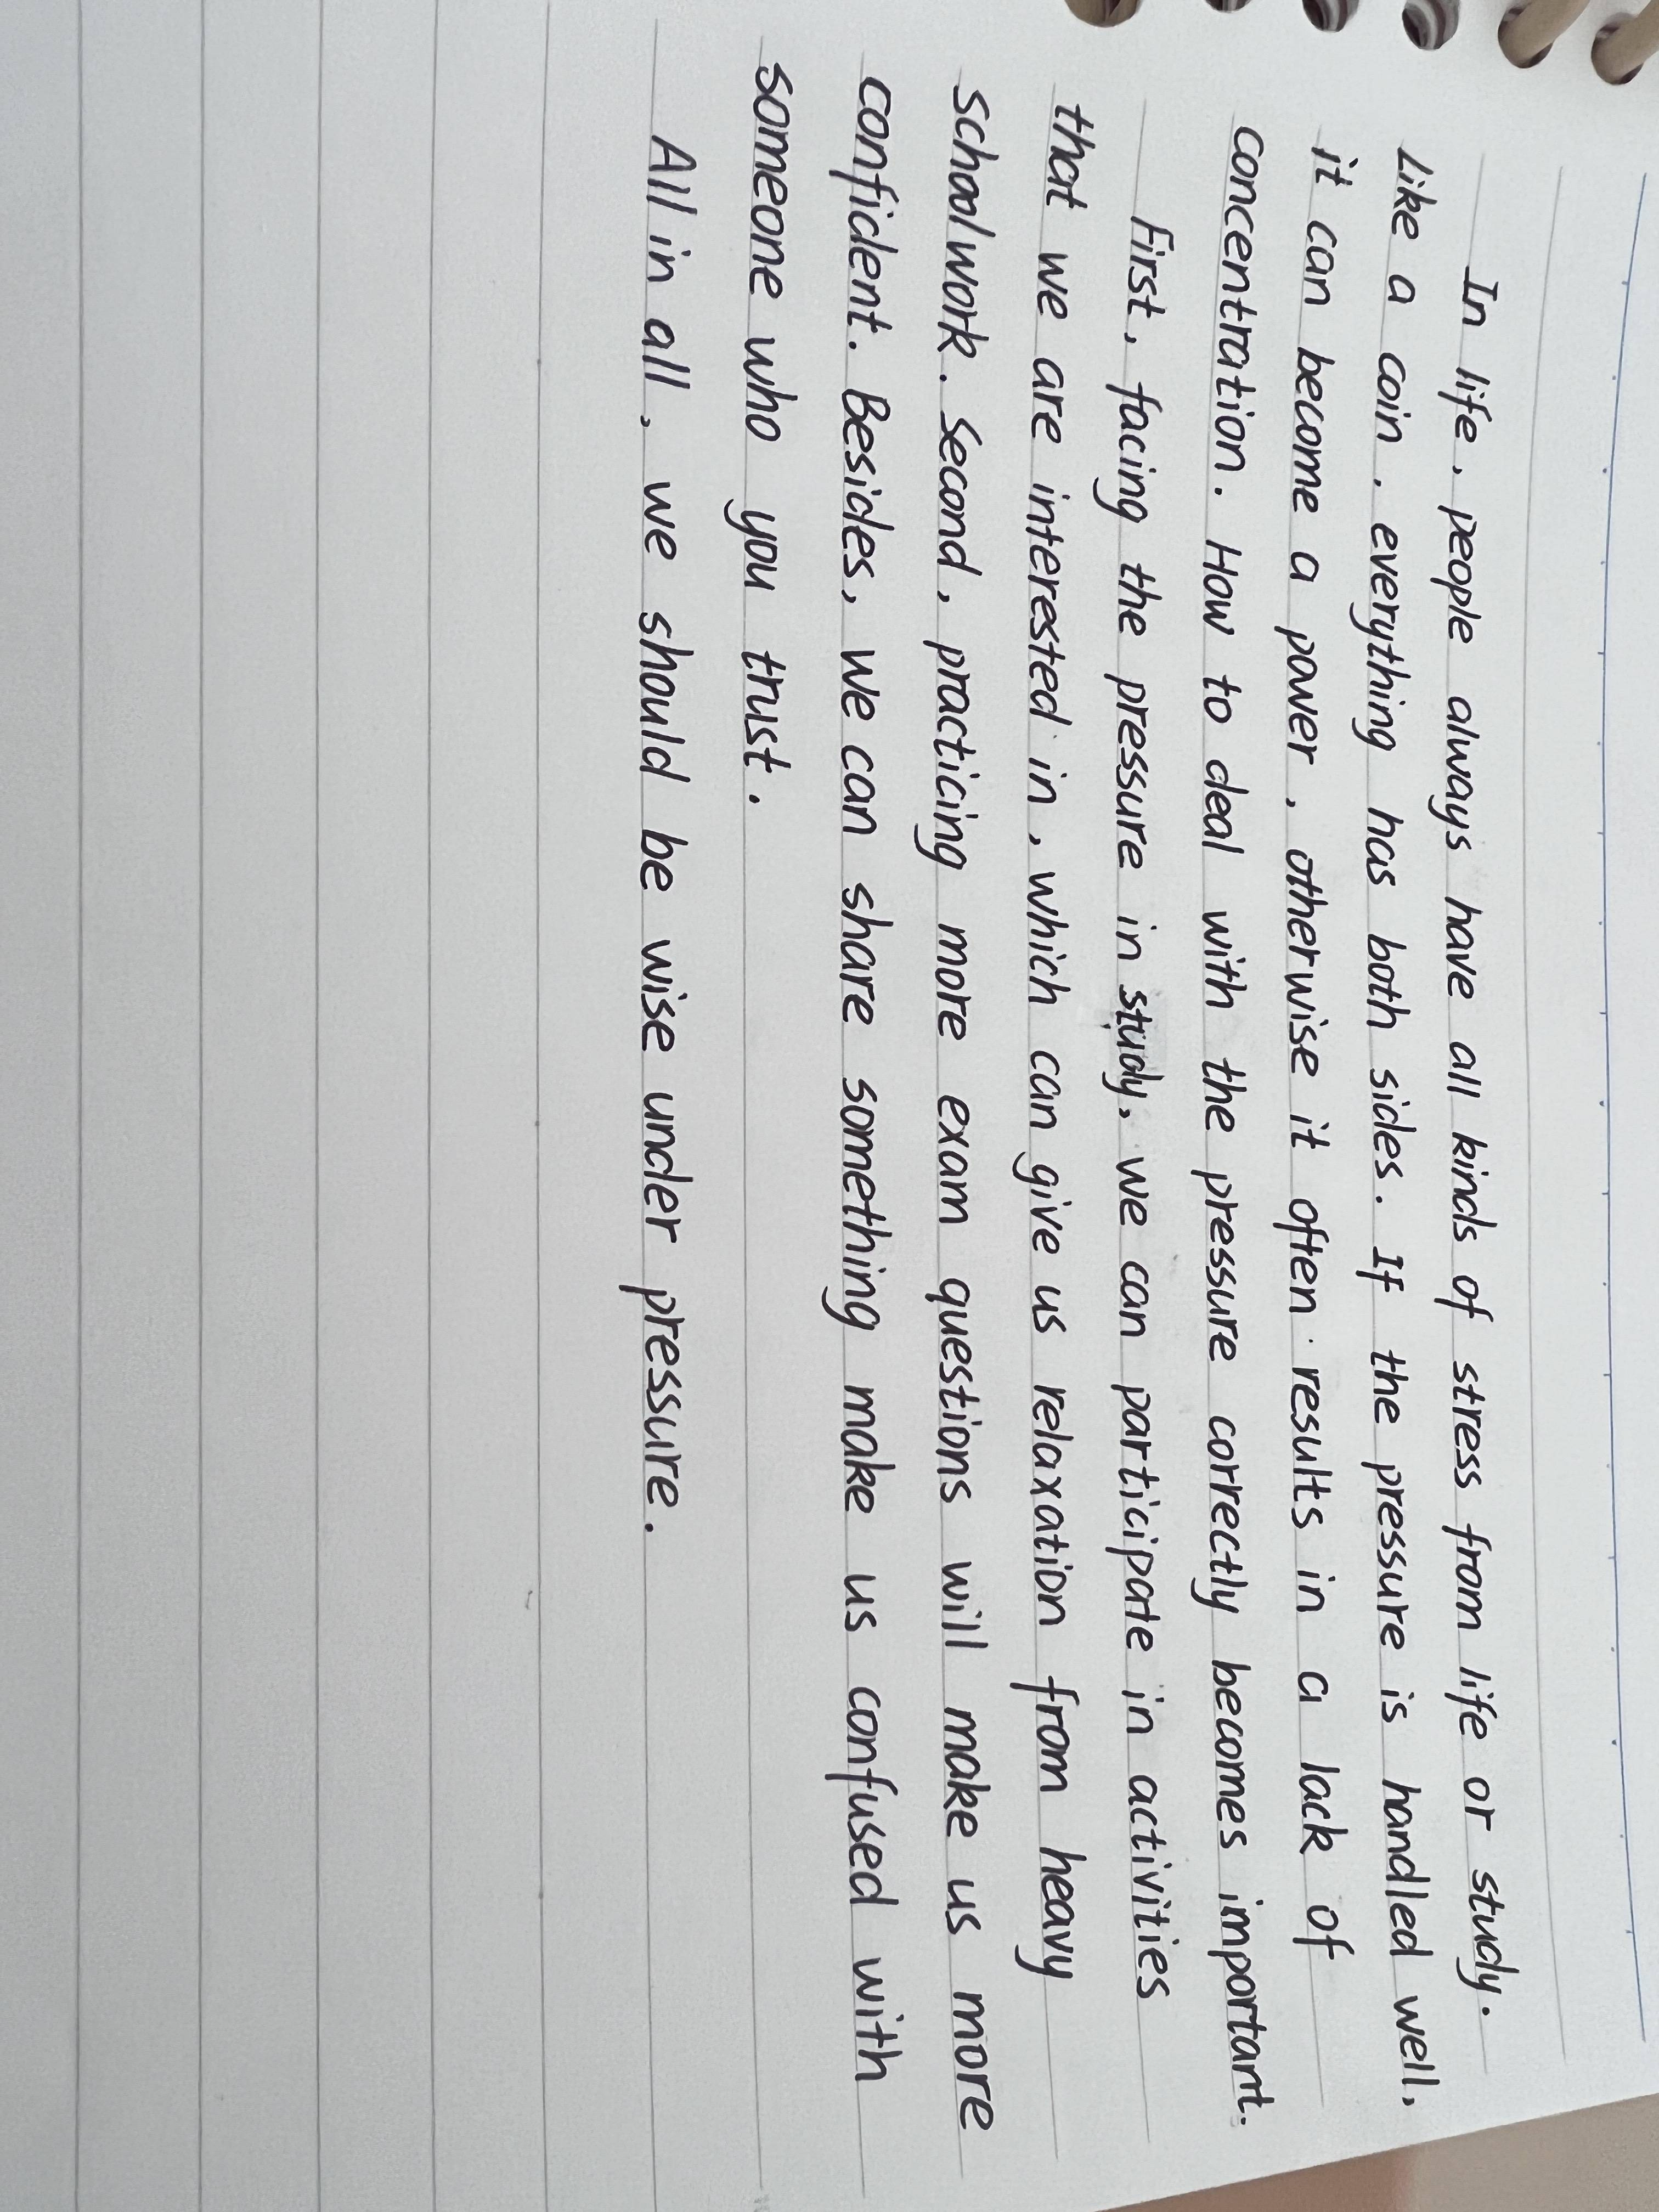 In life, people always have all kinds of stress from life or study.
Like a coin, everything has both sides. If the pressure is handled well,
it can become a power, otherwise it often results in a lack of
concentration. How to deal with the pressure correctly becomes important.
First, facing the pressure in study, we can participate in activities
that we are interested in, which can give us relaxation from heavy
schoolwork. Second, practicing more exam questions will make us more
confident. Besides, we can share something make us confused with
someone who you trust.
All in all, we should be wise under pressure.